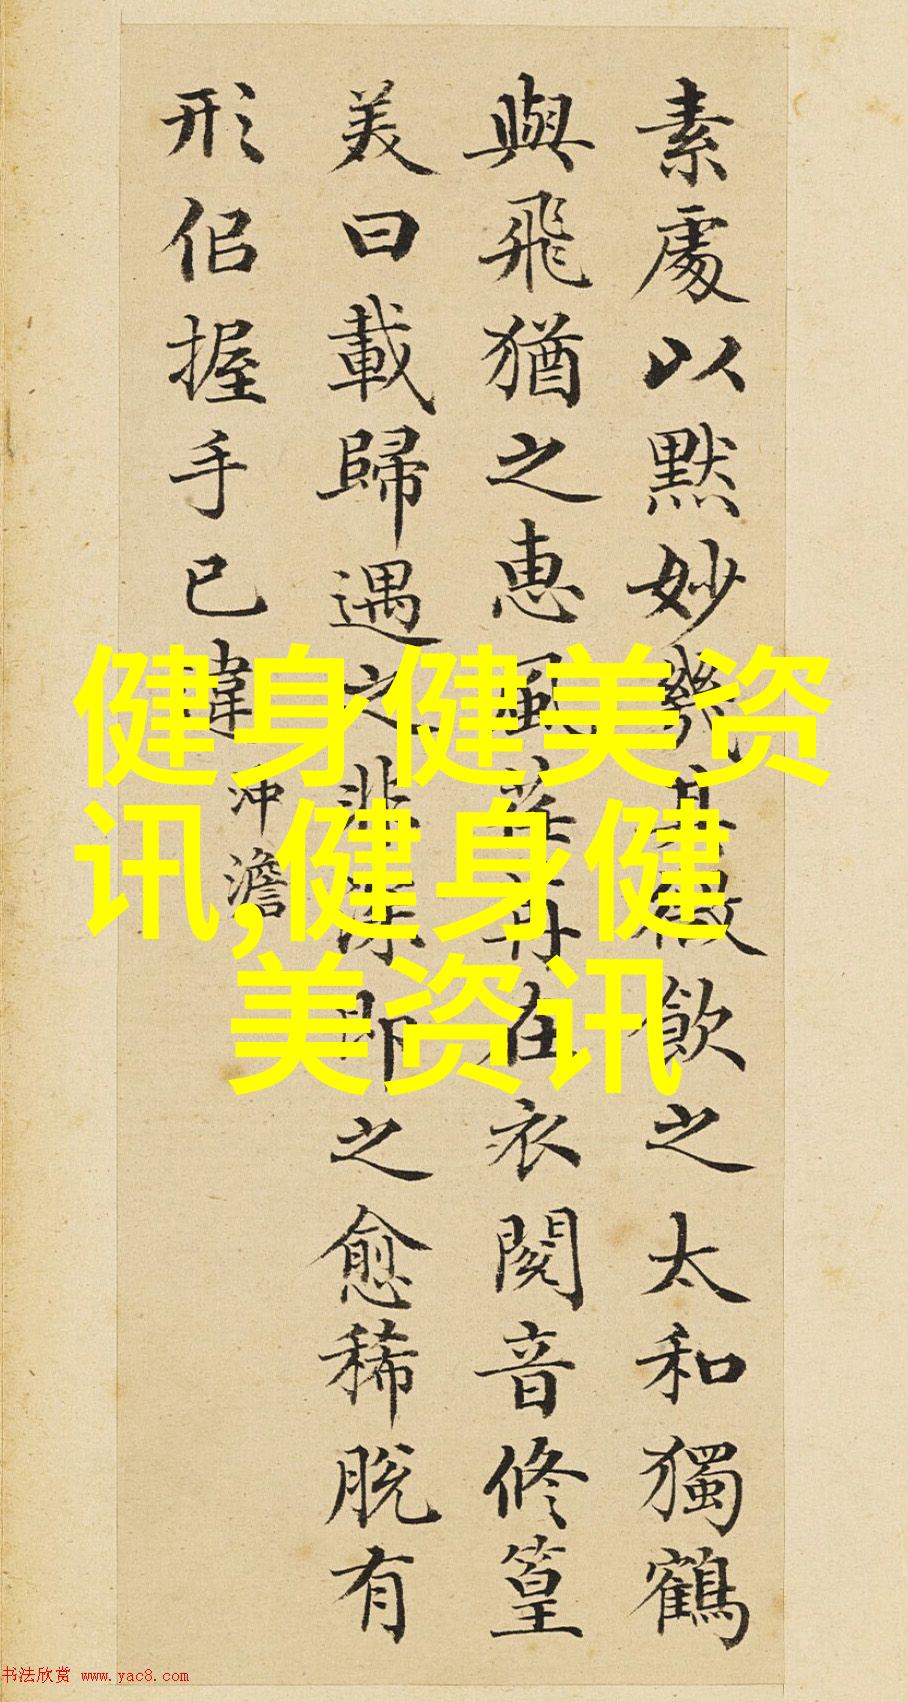 素處以默妙機其微飲之太和獨鶴
與飛猶之惠風荏苒在衣閱音修篁
美曰載歸遇之匪深即之愈稀脫有
形侣握手已違
冲澹
健身健美资
讯,健身健
美资讯
书法欣赏 www.yac8.com